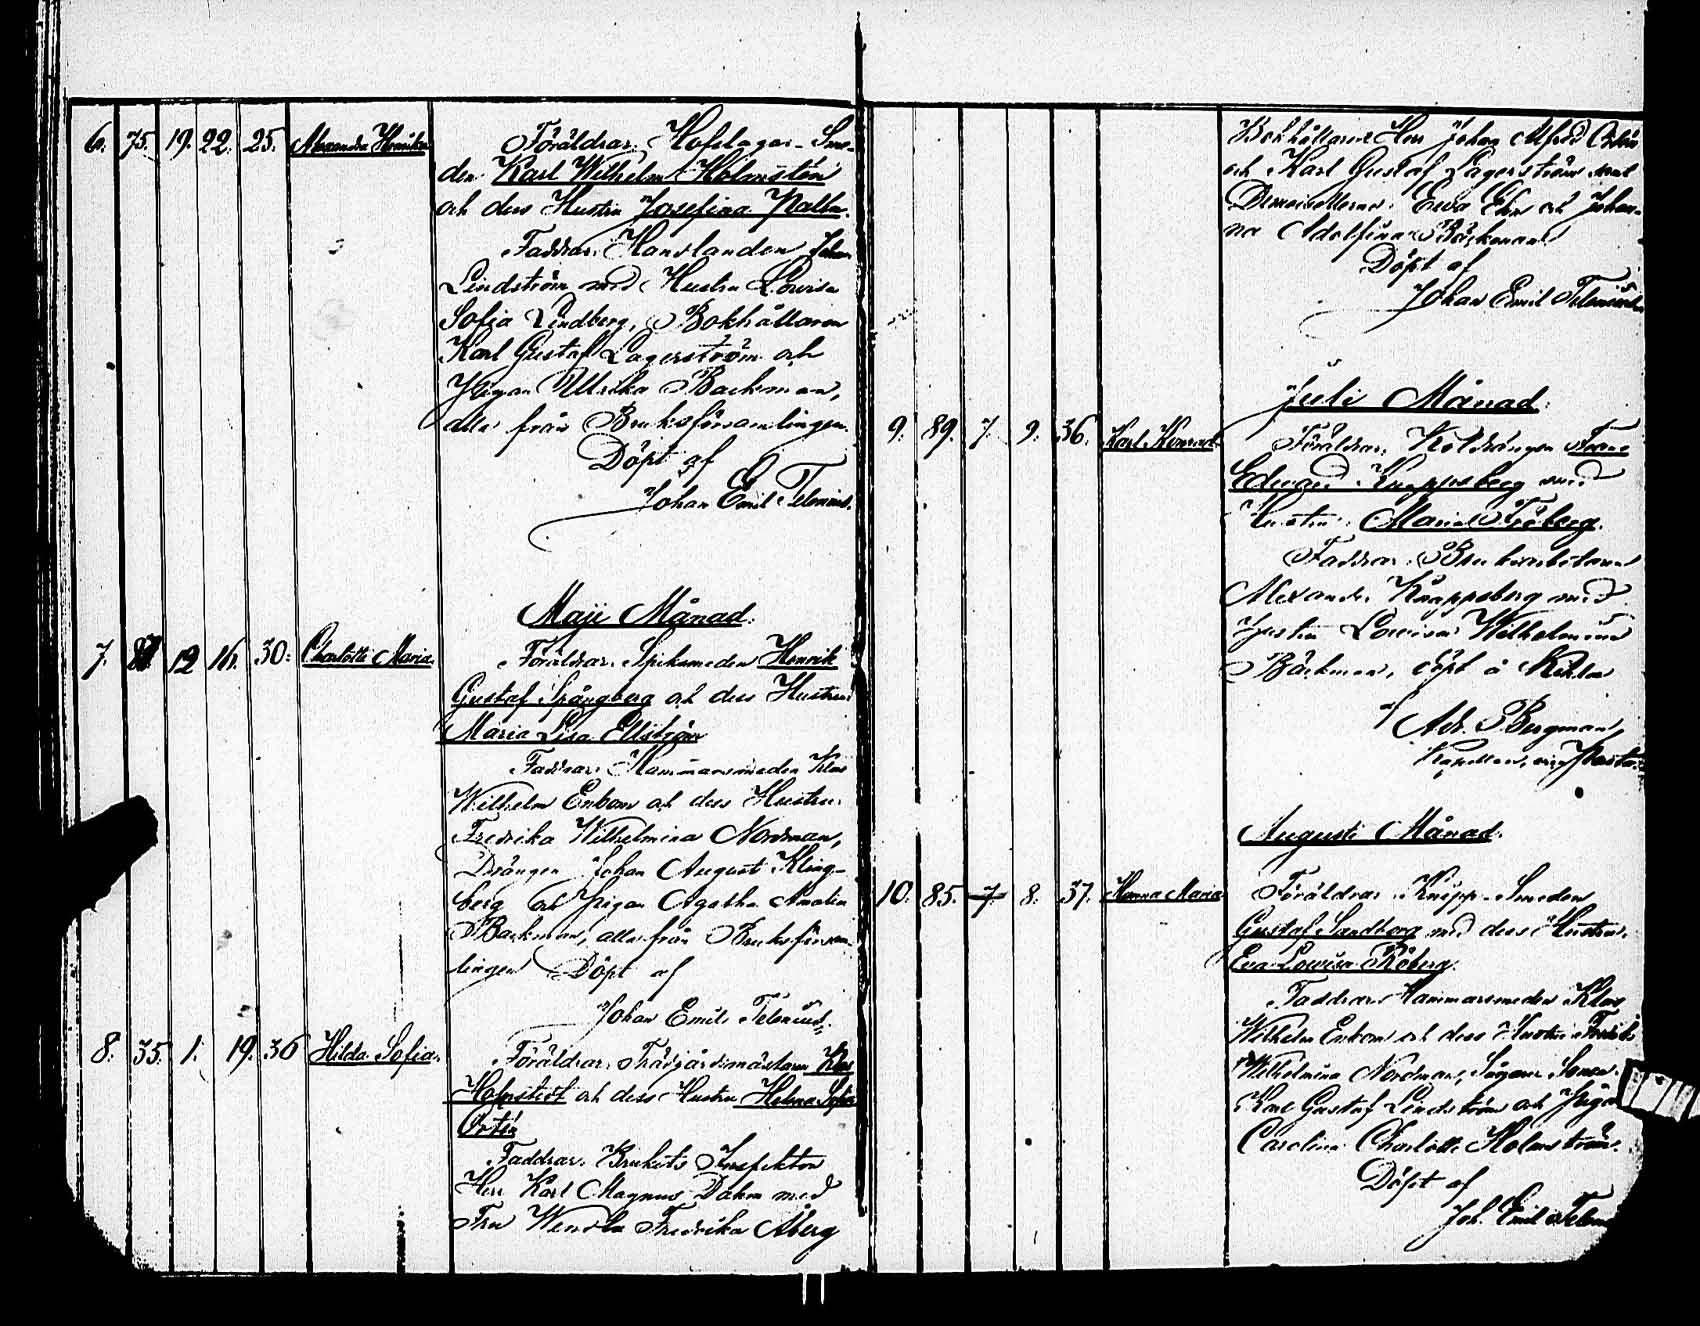 6. 75. 19. 22. 25. Alexandra Henrika
Föräldrar: Hofslagar-Sme-
den Karl Wilhelm Holmstén
och dess Hustru Josefina Malm.
Faddrar: Handlanden Johan
Lindström med Hustru Lovisa
Sofia Lindberg, Bokhållaren
Karl Gustaf Lagerström och
Pigan Ulrika Backman,
alla från Bruksförsamlingen.
Döpt af
Johan Emil Telenius.
Maji Månad.
7. 12 16. 30. Charlotte Maria
Föräldrar: Spiksmeden Henrik
Gustaf Spångberg och dess Hustru
Maria Lisa Ellström
Faddrar: Hammarsmeden Klas
Wilhelm Enbom och dess Hustru
Fredrika Wilhelmina Nordman,
Drängen Johan August Kling-
berg och Pigan Agatha Amalia
Backman, alla från Bruksförsam-
lingen Döpt af
Johan Emil Telenius.
8. 35. 1. 19. 36 Hilda Sofia.
Föräldrar: Trädgårdsmästaren Klas
Holmstedt och dess Hustru Helena Sofia
Ortén
Faddrar: Brukets Inspektor
Herr Karl Magnus Dahm med
Fru Wendla Fredrika Åberg
Bokhållarne Herr Johan Alfred Ortén
och Karl Gustaf Lagerström samt
Demoisellerna Ewa Ehn och Johan-
na Adolfina Bäckman
Döpt af
Johan Emil Telenius
Juli Månad.
9. 89. 7. 9. 36. Karl Konrad
Föräldrar: Koldrängen Frans
Edvard Knappsberg med
Hustru Maria Fröberg.
Faddrar: Bruksarbetaren
Alexander Knappsberg med
Hustru Lovisa Wilhelmina
Bäckman, döpt i Kyrkan
af Adr. Bergman,
Augusti Månad.
10. 85. 7. 8. 37. Hanna Maria
Föräldrar: Knipp-Smeden
Gustaf Sandberg med dess Hustru
Eva Lowisa Råberg.
Faddrar: Hammarsmeden Klas
Wilhelm Enbom och dess Hustru Fredrika
Wilhelmina Nordman, Sonen
Karl Gustaf Lindström och Pigan
Carolina Charlotte Holmström.
Döpt af
Joh. Emil Telenius